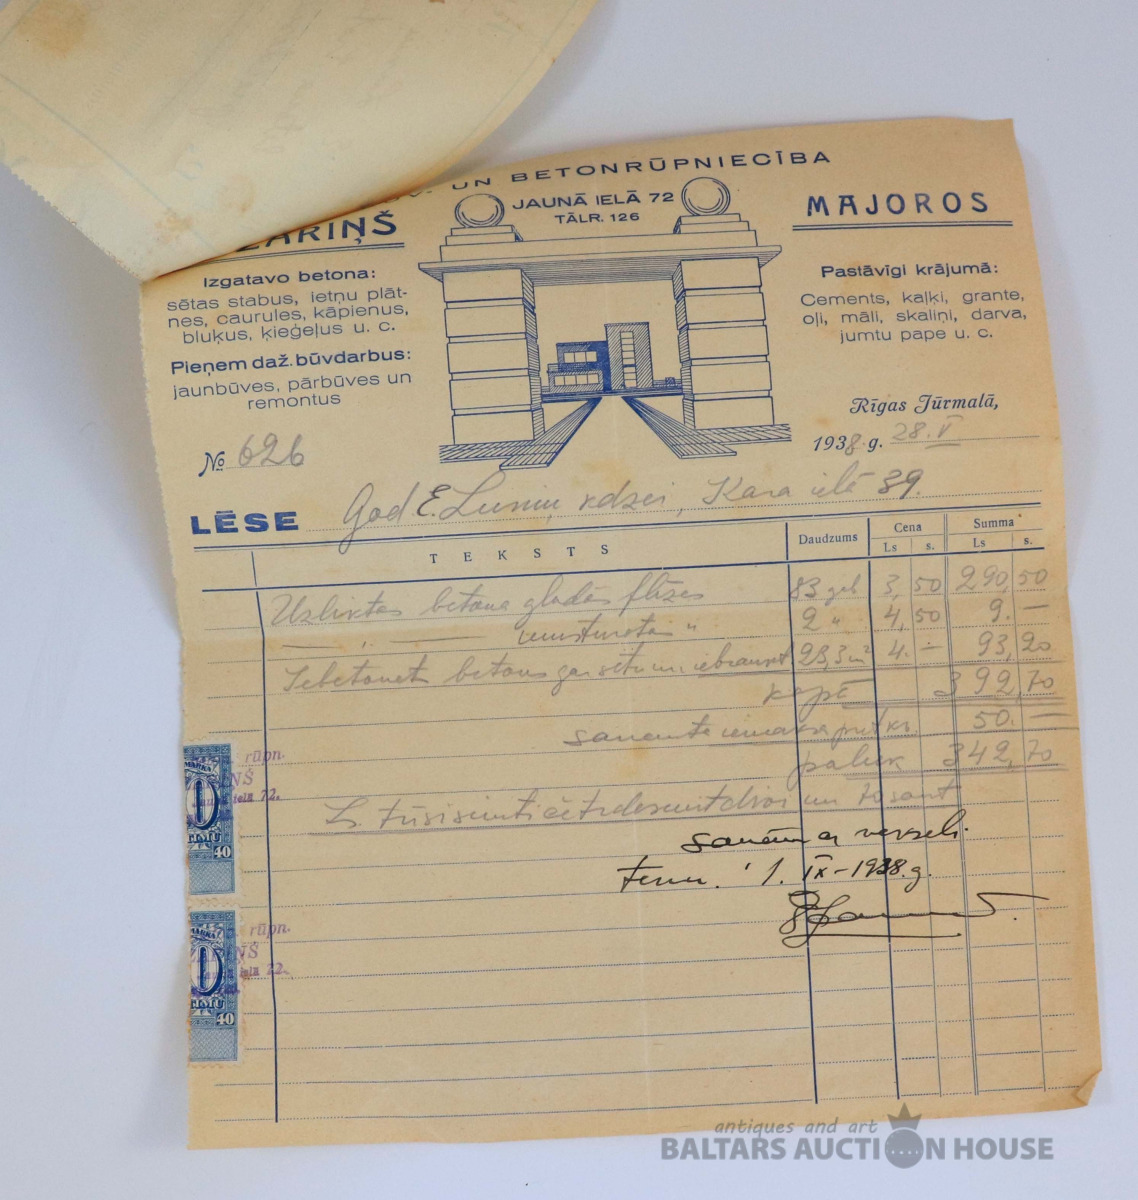 UN BETONRŪPNIECĪBA
ZARIŅŠ
JAUNĀ IELĀ 72
TĀLR. 126
MAJOROS
Izgatavo betona:
sētas stabus, ietņu plāt-
nes, caurules, kāpienus,
bluķus, ķieģeļus u. c.
Pieņem daž. būvdarbus:
jaunbūves, pārbūves un
remontus
Pastāvīgi krājumā:
Cements, kaļķi, grante,
oļi, māli, skaliņi, darva,
jumtu pape u. c.
Rīgas Jūrmalā,
1938. g. 28. V
№ 626
LĒSE God E. kdzei, Kara ielā 39.
TEKSTS Daudzums Cena Summa
Ls s. Ls s.
Uzliktas betona gludās flīzes 83 gab 3,50 290,50
2 " 4,50 9.—
Iebetonēt betons gar sētu un iebraukt 23,3 m² 4.— 93,20
kopā 392,70
saņemta iemaksa 50.—
paliek 342,70
Ls trīsisimti četrdesmit divi un 70 sant
saņēmu ar vekseli
term. 1. IX–1938. g.
MARKA
40
rūpn.
IŅŠ
ielā 72.
MARKA
40
rūpn.
ZARIŅŠ
ielā 72.
antiques and art
BALTARS AUCTION HOUSE